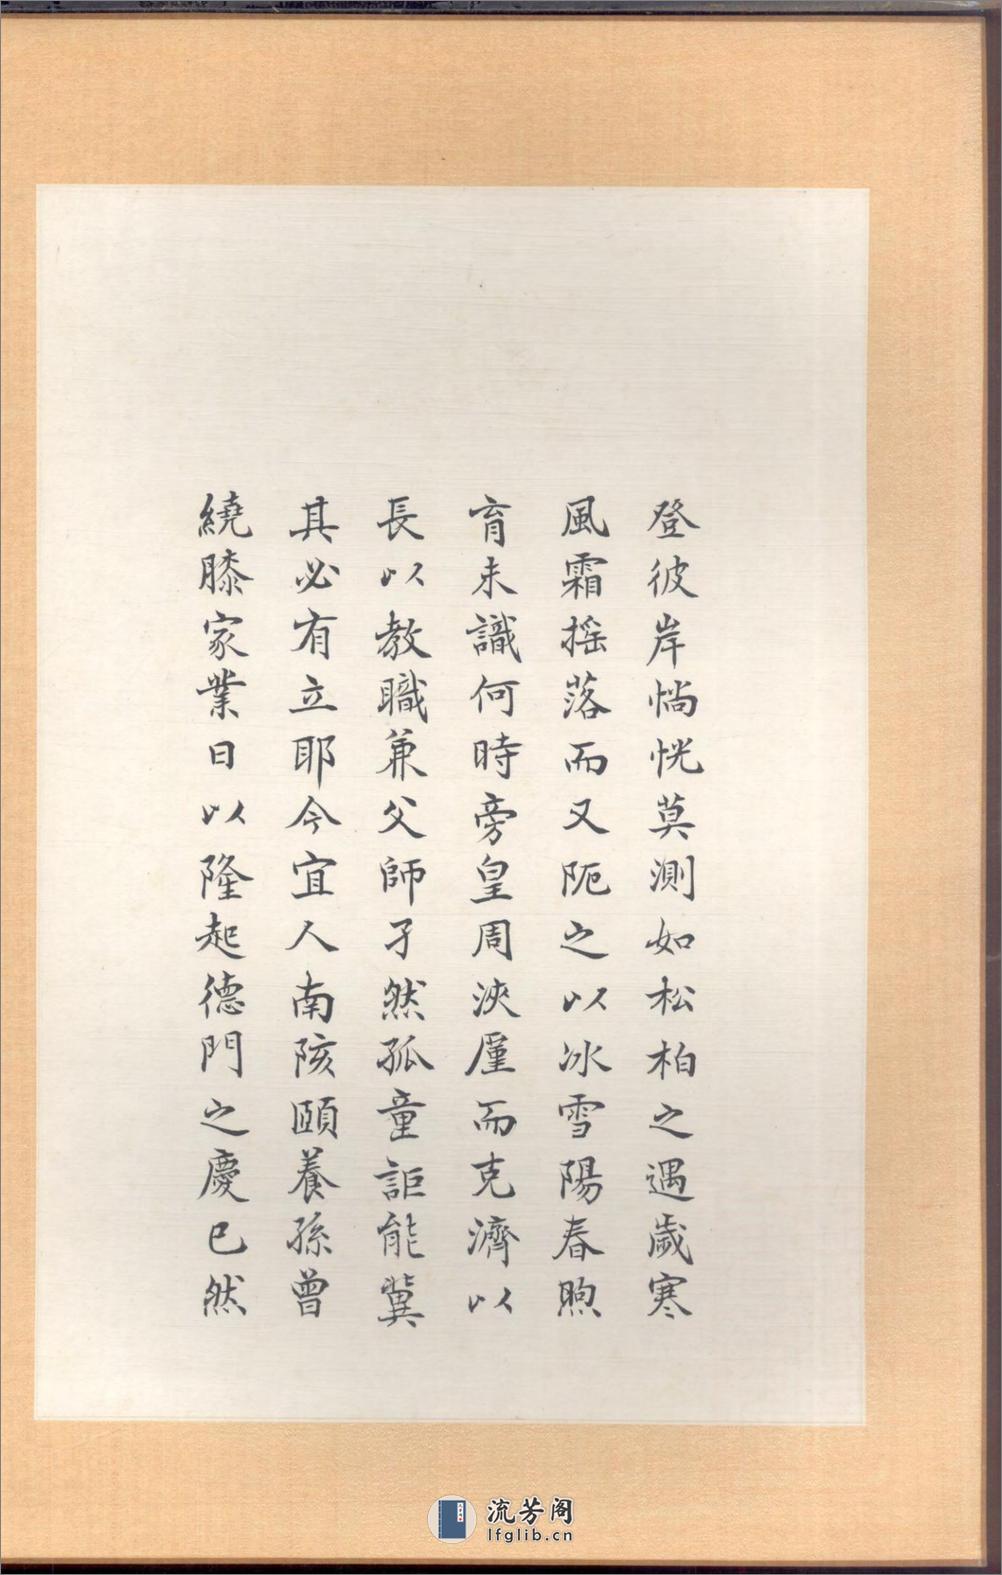 登彼岸惝恍莫測如松柏之遇歲寒
風霜摇落而又阨之以冰雪陽春煦
育未識何時旁皇周浹厪而克濟以
長以教職兼父師孑然孤童詎能冀
其必有立耶今宜人南陔頤養孫曾
繞膝家業日以隆起德門之慶已然
流芳阁
lfglib.cn